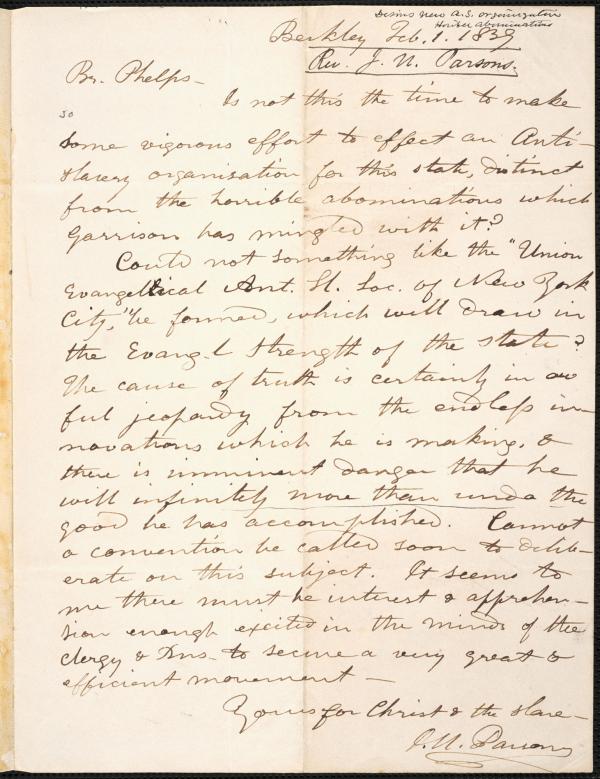 Desires new A.S. organization
Horrible abominations
Berkley Feb. 1. 1839
Rev. J. U. Parsons.
Br. Phelps—
Is not this the time to make
so
some vigorous effort to effect an Anti-
slavery organisation for this state, distinct
from the horrible abominations which
Garrison has mingled with it?
Could not something like the "Union
Evangelical Ant. Sl. Soc. of New York
City," be formed, which will draw in
the Evang-l strength of the state?
The cause of truth is certainly in aw
ful jeopardy from the endless in-
novations which he is making, &
there is imminent danger that he
will infinitely more than undo the
good he has accomplished. Cannot
a convention be called soon to delib-
erate on this subject. It seems to
me there must be interest & apprehen-
sion enough excited in the minds of the
clergy & to secure a very great &
efficient movement —
Yours for Christ & the slave—
J. U. Parsons